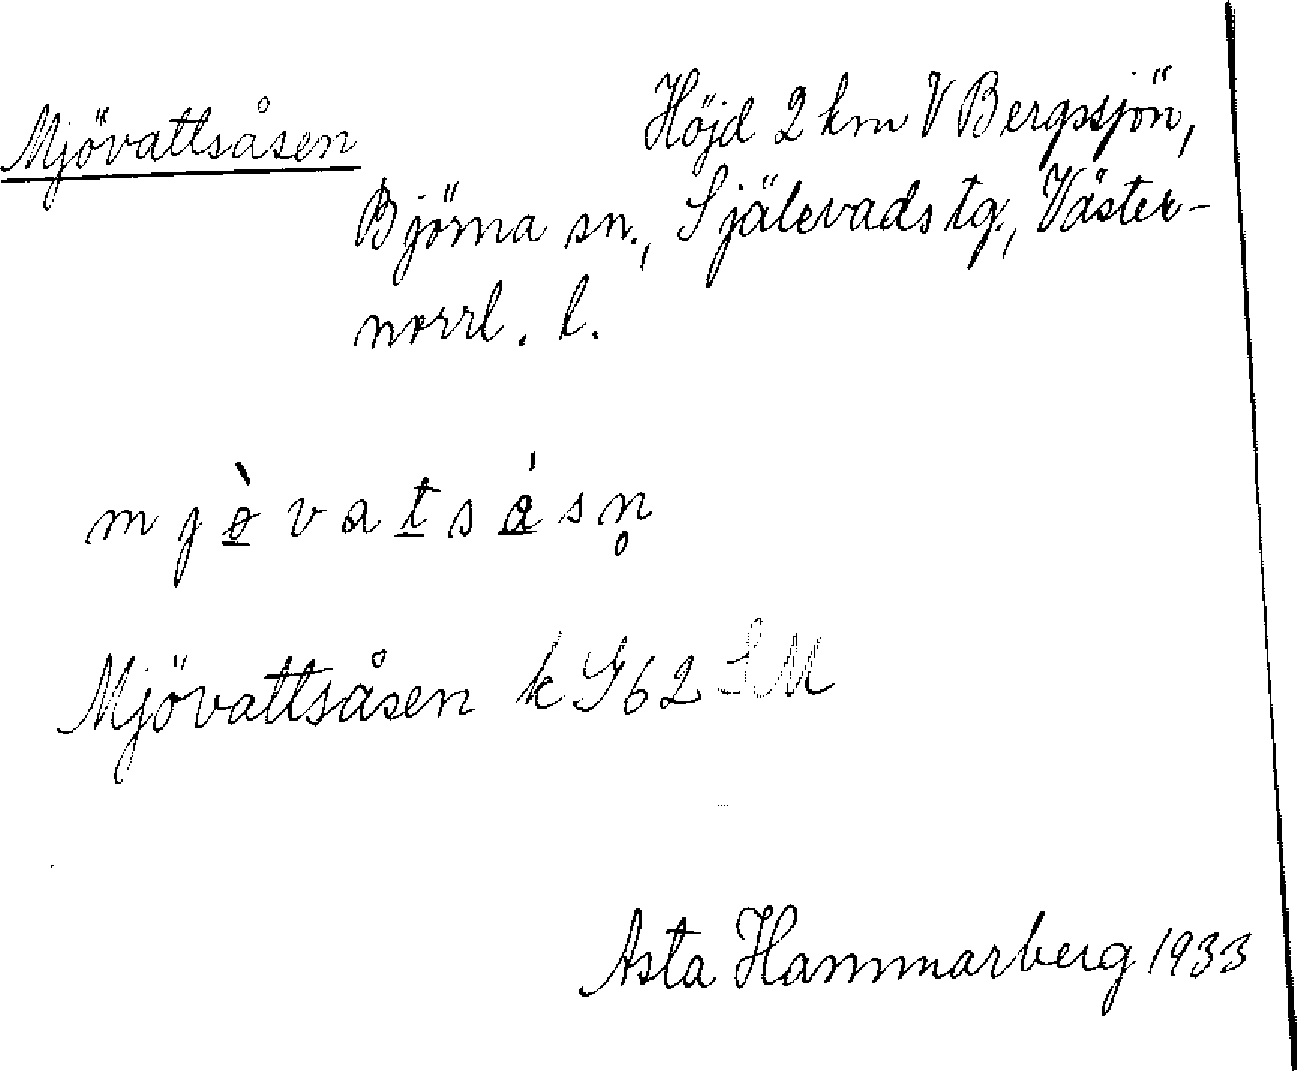 Mjövattsåsen
Höjd 2 km V Bergssjön,
Björna sn., Själevads tg., Väster-
norrl. l.
mjòvatsásn̥
Mjövattsåsen k G62 SM
Asta Hammarberg 1933